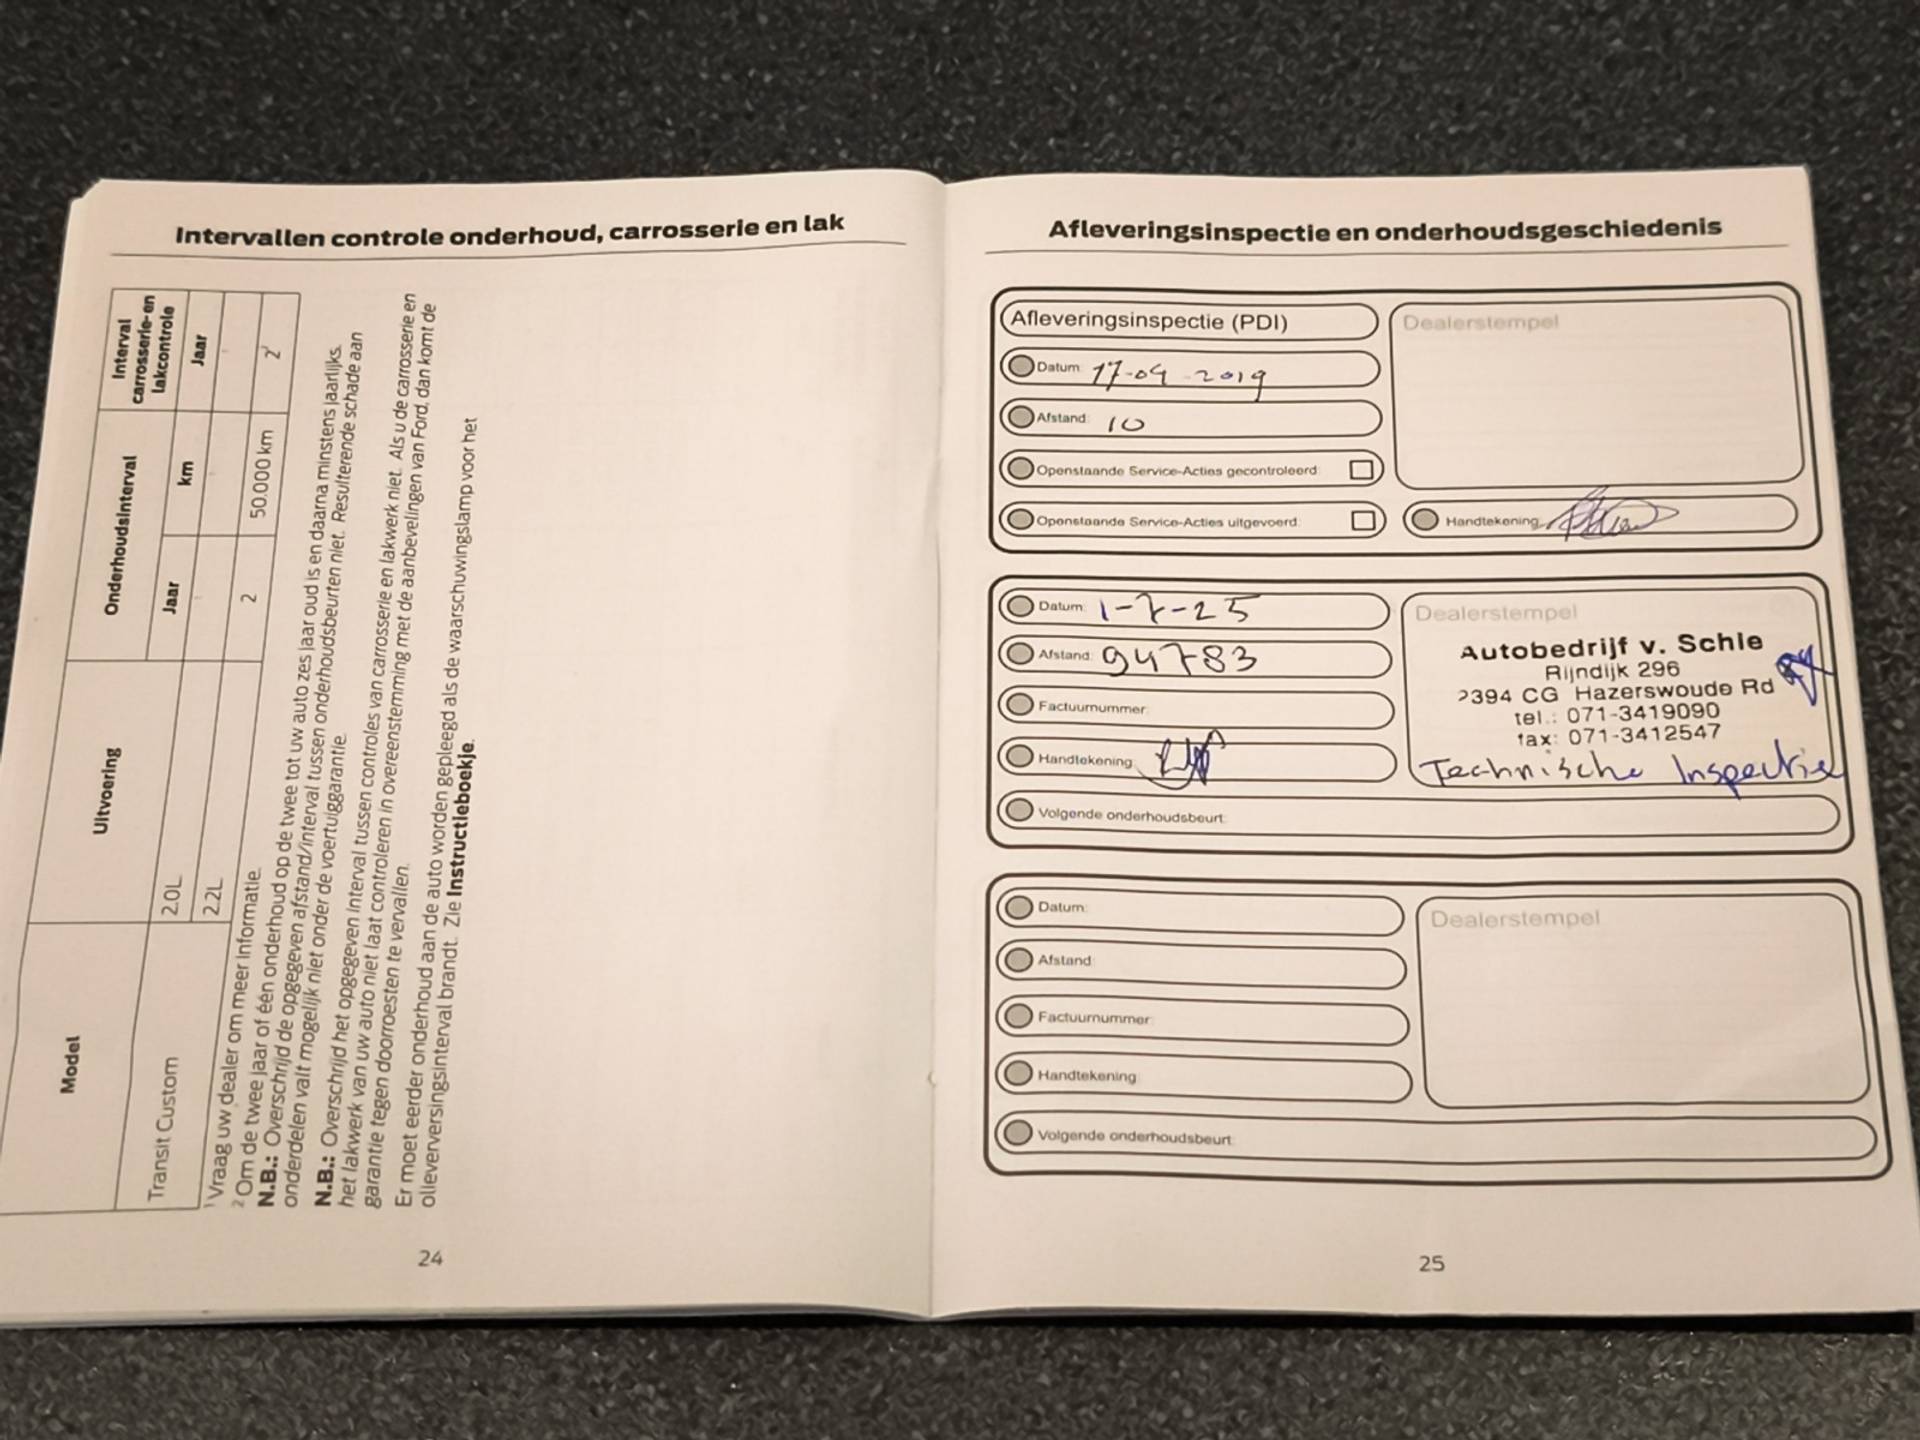 Intervallen controle onderhoud, carrosserie en lak
Model
Uitvoering
Onderhoudsinterval
Interval
carrosserie- en
lakcontrole
Jaar
km
Jaar
Transit Custom
2.0L
2.2L
2
50.000 km
2
1 Vraag uw dealer om meer informatie.
2 Om de twee jaar of één onderhoud op de twee tot uw auto zes jaar oud is en daarna minstens jaarlijks.
N.B.: Overschrijd de opgegeven afstand/interval tussen onderhoudsbeurten niet. Resulterende schade aan
onderdelen valt mogelijk niet onder de voertuiggarantie.
N.B.: Overschrijd het opgegeven interval tussen controles van carrosserie en lakwerk niet. Als u de carrosserie en
het lakwerk van uw auto niet laat controleren in overeenstemming met de aanbevelingen van Ford, dan komt de
garantie tegen doorroesten te vervallen.
Er moet eerder onderhoud aan de auto worden gepleegd als de waarschuwingslamp voor het
olieverversingsinterval brandt. Zie Instructieboekje.
24
Afleveringsinspectie en onderhoudsgeschiedenis
Afleveringsinspectie (PDI)
Datum: 17-04-2019
Afstand: 10
Openstaande Service-Acties gecontroleerd:
Openstaande Service-Acties uitgevoerd:
Dealerstempel
Handtekening:
Datum: 1-7-25
Afstand: 94783
Factuurnummer:
Handtekening:
Volgende onderhoudsbeurt:
Dealerstempel
Autobedrijf v. Schie
Rijndijk 296
2394 CG Hazerswoude Rd
tel.: 071-3419090
fax: 071-3412547
Technische Inspectie
Datum:
Afstand:
Factuurnummer:
Handtekening:
Volgende onderhoudsbeurt:
Dealerstempel
25